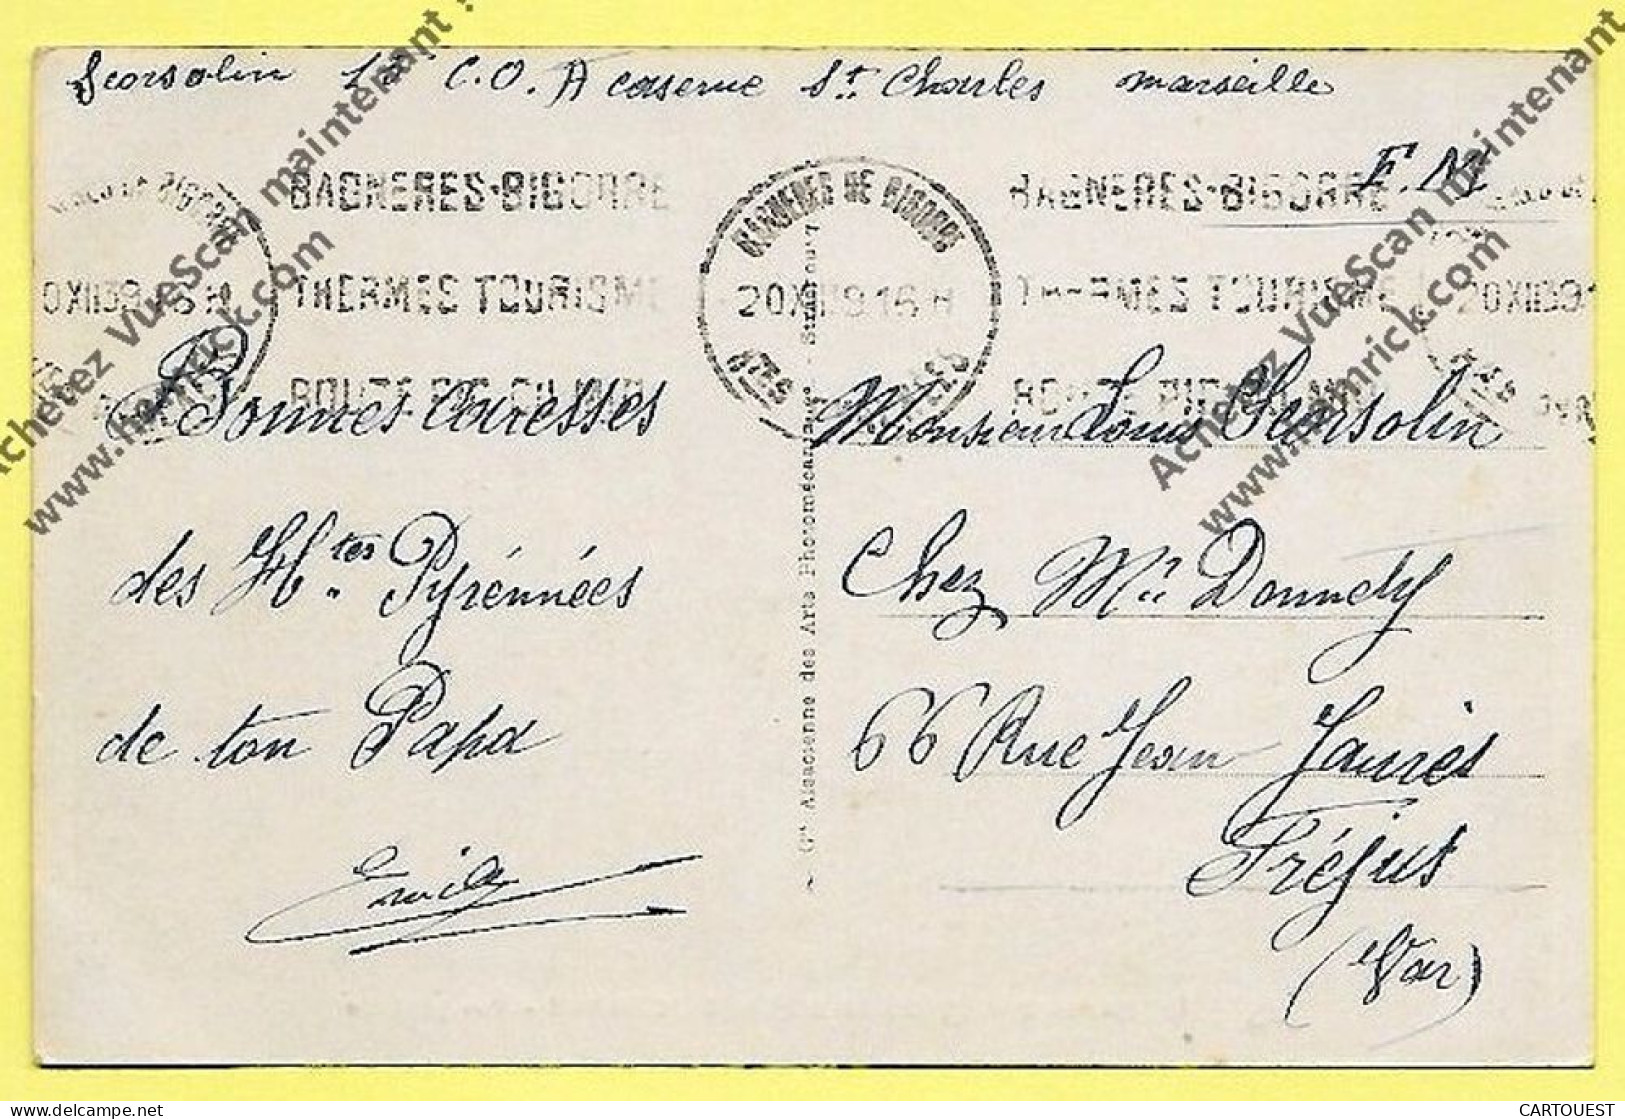 Scorsolin 15 C.O.A caserne St. Charles Marseille
F.M
BAGNERES-BIGORRE
THERMES TOURISME
BAGNERES DE BIGORRE
20 XII 39 16 H
HTES
BAGNERES-BIGORRE
THERMES TOURISME
20 XII 39
Bonnes caresses
des Htes Pyrénnées
de ton Papa
Emile
Monsieur Louis Scorsolin
Chez Mr Donnedy
66 Rue Jean Jaurès
Fréjus
(Var)
Gie Alsacienne des Arts Photomécaniques - Strasbourg
Achetez VueScan maintenant !
www.hamrick.com
Achetez VueScan maintenant
www.hamrick.com
delcampe.net
CARTOUEST